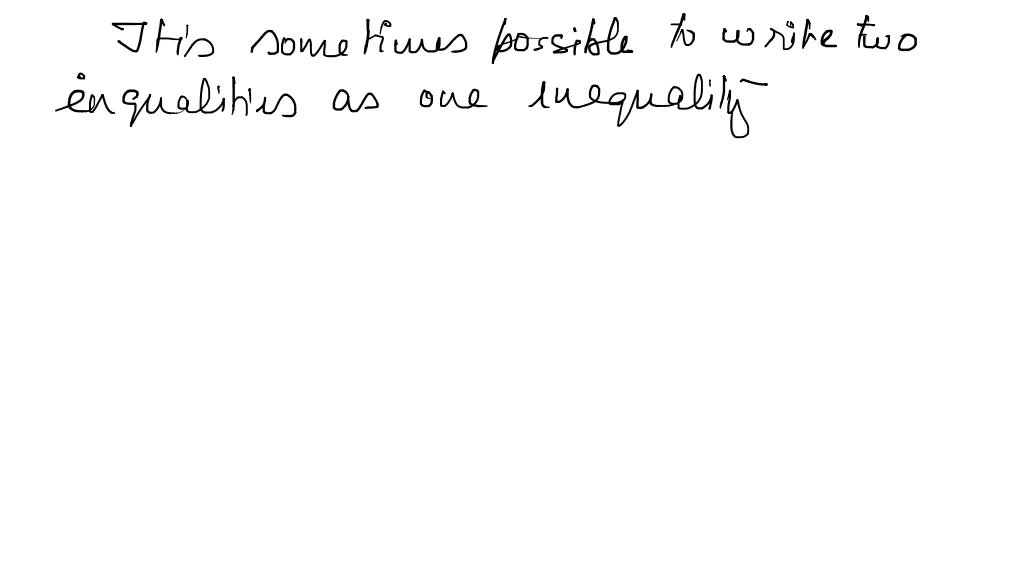 It is sometimes possible to write two
inqualities as one inequality